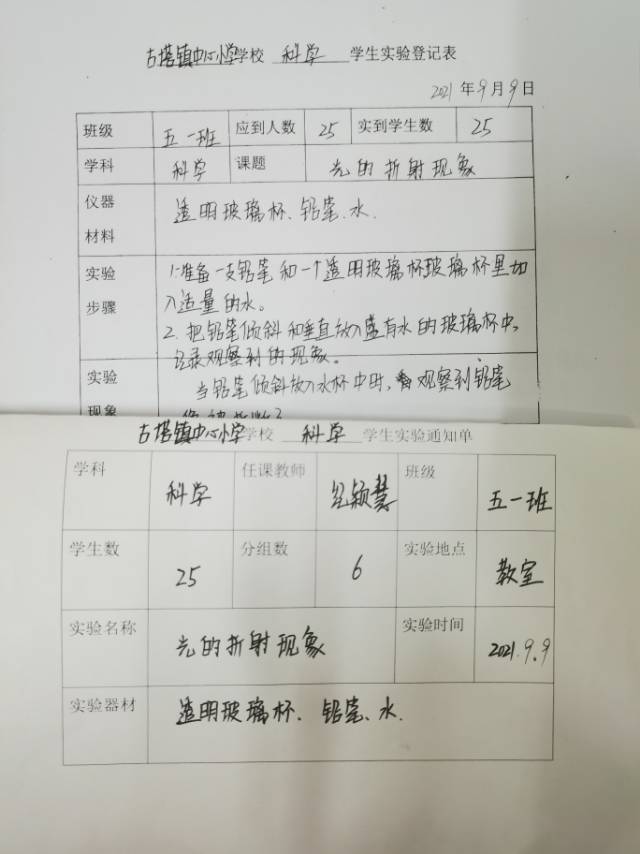 古塔镇中心小学学校 科学 学生实验登记表
2021 年 9 月 9 日
班级 五一班 应到人数 25 实到学生数 25
学科 科学 课题 光的折射现象
仪器 材料 透明玻璃杯、铅笔、水.
实验 步骤 1.准备一支铅笔和一个透明玻璃杯玻璃杯里加
入适量的水。
2.把铅笔倾斜和垂直放入盛有水的玻璃杯中,
记录观察到的现象。
实验 现象 当铅笔倾斜放入水杯中时, 观察到铅笔
古塔镇中心小学学校 科学 学生实验通知单
学科 科学 任课教师 颖慧 班级 五一班
学生数 25 分组数 6 实验地点 教室
实验名称 光的折射现象 实验时间 2021.9.9
实验器材 透明玻璃杯、铅笔、水.